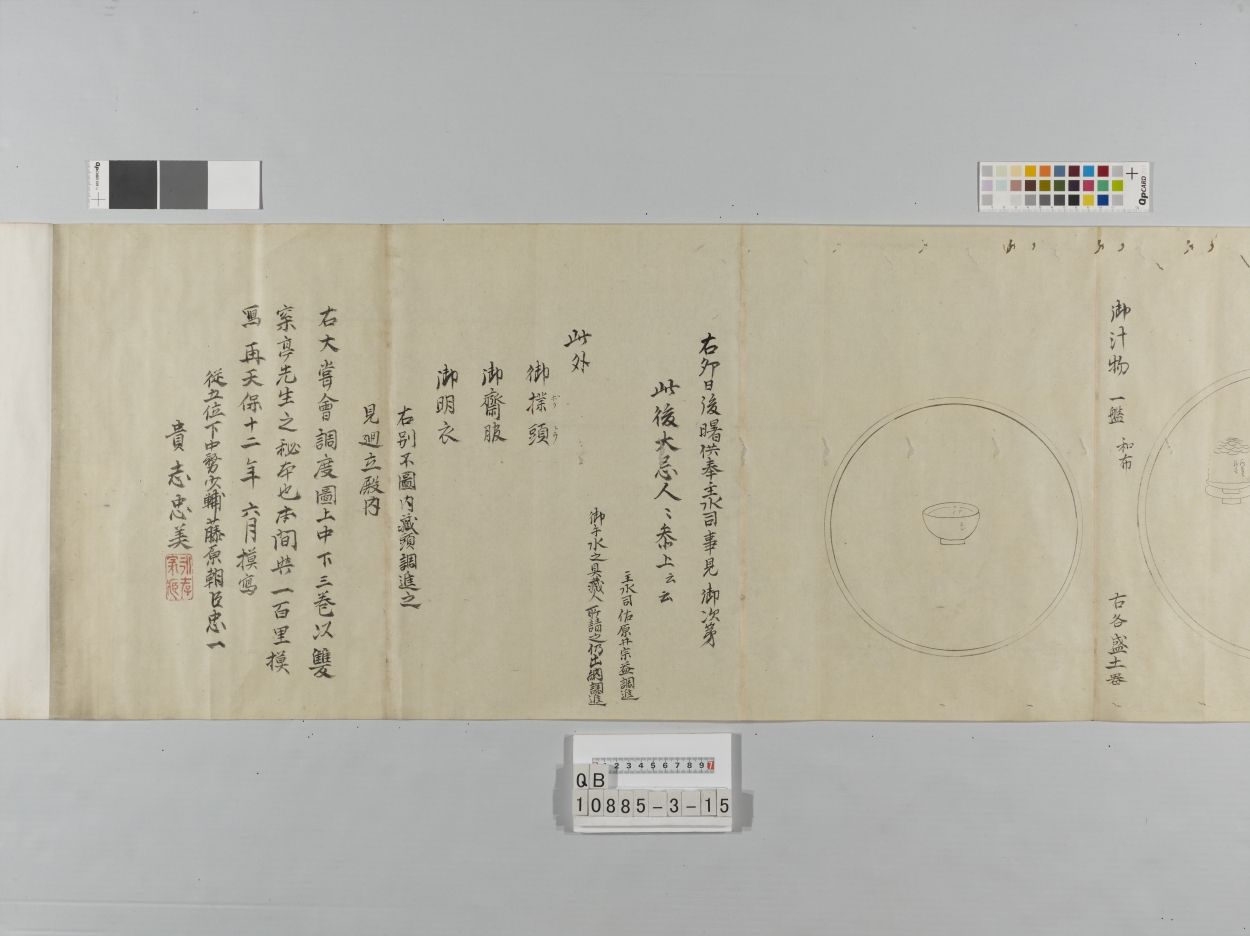 御汁物 一盤 和布
右各盛土器
右夘日後曙供奉主水司事見御次第
此後大忌人〻参上云云
主水司佑原井宗益調進
御手水之具蔵人所請之仍出納調進
此外
御幞頭
御齋服
御明衣
右別不圖内藏頭調進之
見廻立殿内
右大嘗會調度圖上中下三巻以雙
寀亭先生之秘本也本間與一百里摸
寫再天保十二年六月摸寫
從五位下中務少輔藤原朝臣忠一
貴志忠美
QB
10885-3-15